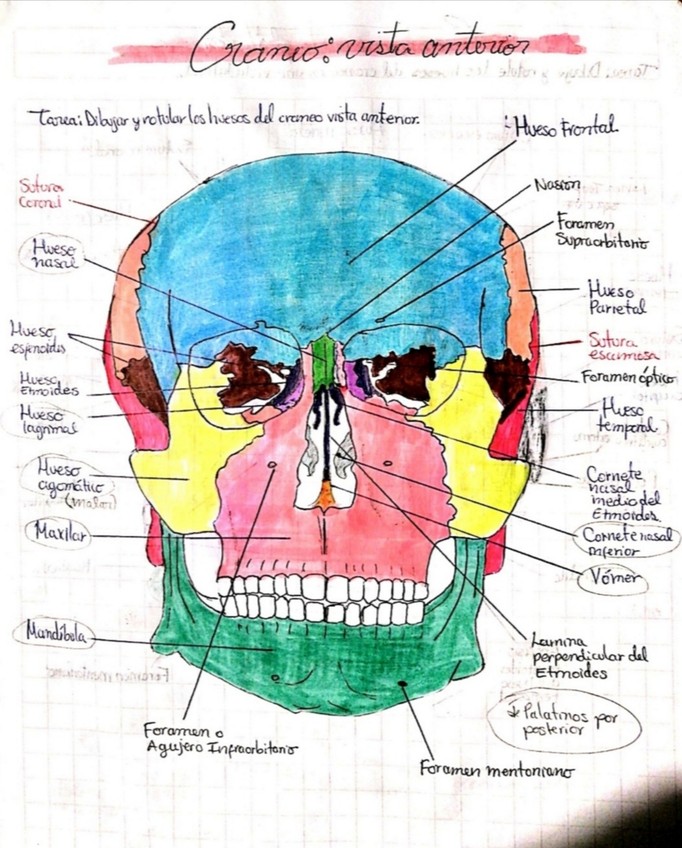 Cráneo: vista anterior
Tarea: Dibujar y rotular los huesos del craneo vista anterior.
Hueso Frontal
Nasion
Foramen
Supraorbitario
Hueso
Parietal
Sutura
escamosa
Foramen óptico
Hueso
temporal
Cornete
nasal
medio del
Etmoides
Cornete nasal
inferior
Vómer
Lamina
perpendicular del
Etmoides
Palatinos por
posterior
Foramen mentoniano
Sutura
Coronal
Hueso
nasal
Hueso
esfenoides
Hueso
Etmoides
Hueso
lagrimal
Hueso
agomático
(malar)
Maxilar
Mandíbula
Foramen o
Agujero Infraorbitario